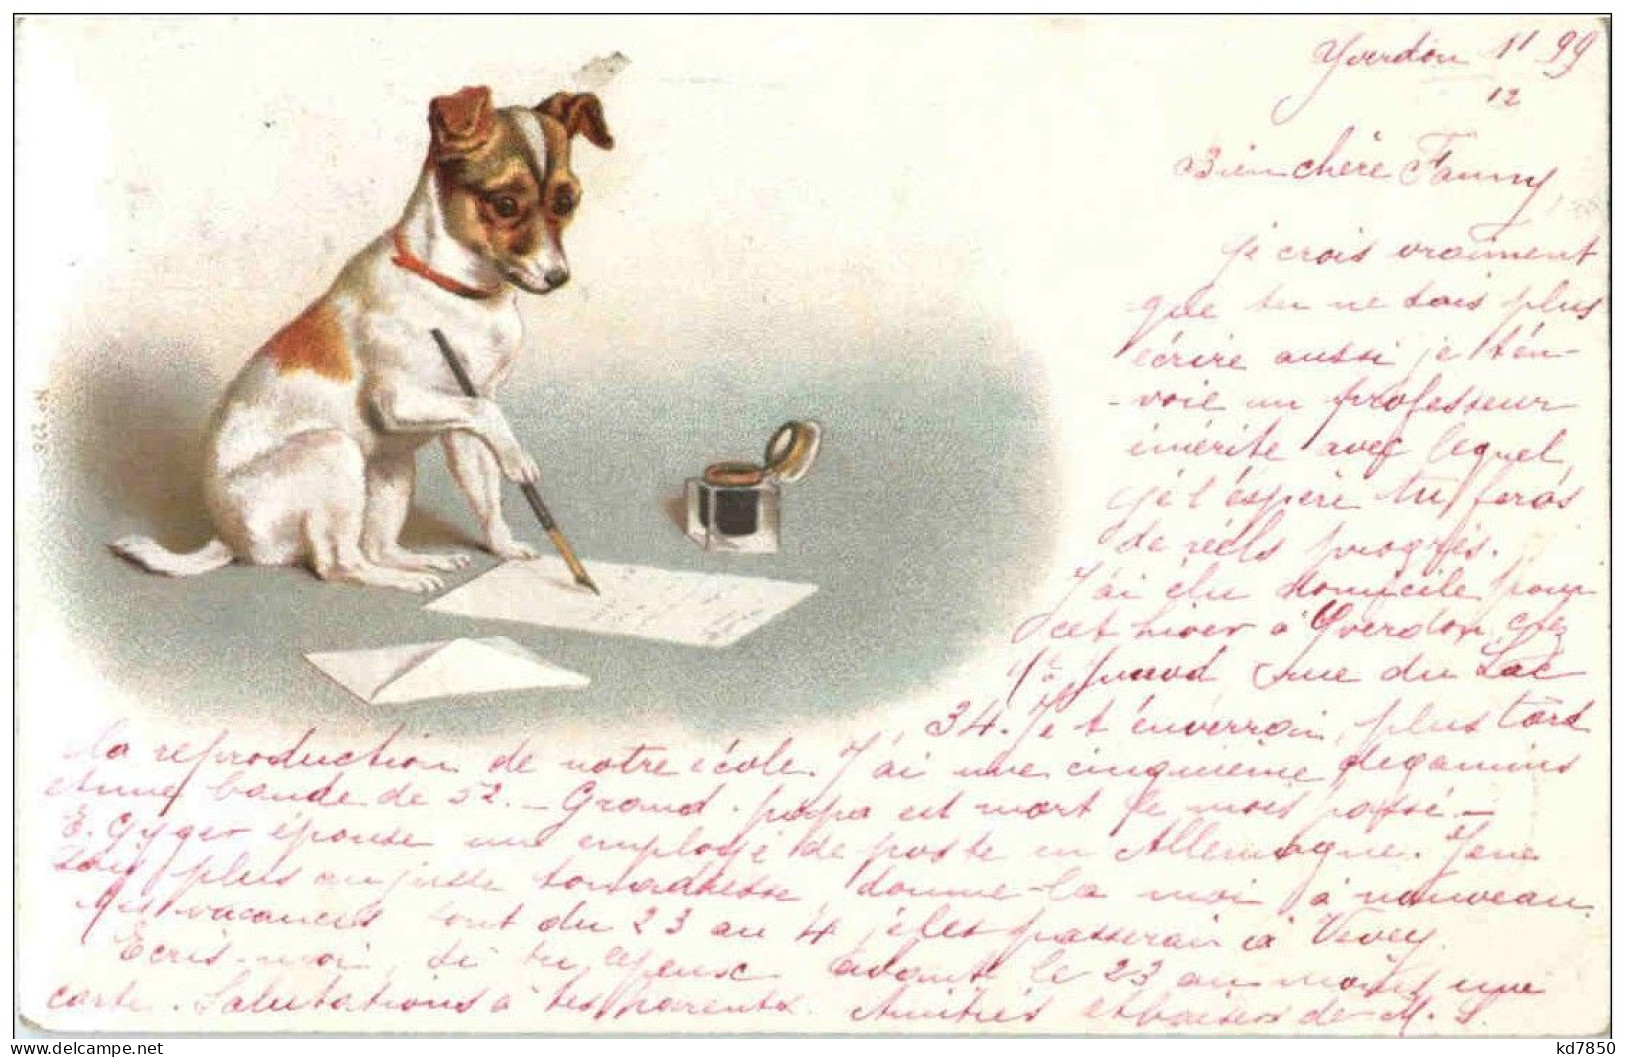 Yverdon 11 99
12
Bien chère Fanny
je crois vraiment
que tu ne sais plus
écrire aussi je t'en-
-voie un professeur
émérite avec lequel,
je l'espère tu feras
de réels progrès.
J'ai élu domicile pour
cet hiver à Yverdon, chez
Junod rue du Lac
34. Je t'enverrai, plus tard
la reproduction de notre école. J'ai une cinquième de gamins
et une bande de 52. – Grand-papa est mort le mois passé –
E. Gyger épouse un employé de poste en Allemagne. Je ne
sais plus au juste ton adresse donne-la moi à nouveau.
Mes vacances sont du 23 au 4 je les passerai à Vevey.
Ecris-moi, si tu peux avant le 23 au moins une
carte. Salutations à tes parents. Amitiés et baisers de M. S.
No 226
kd7850
delcampe.net